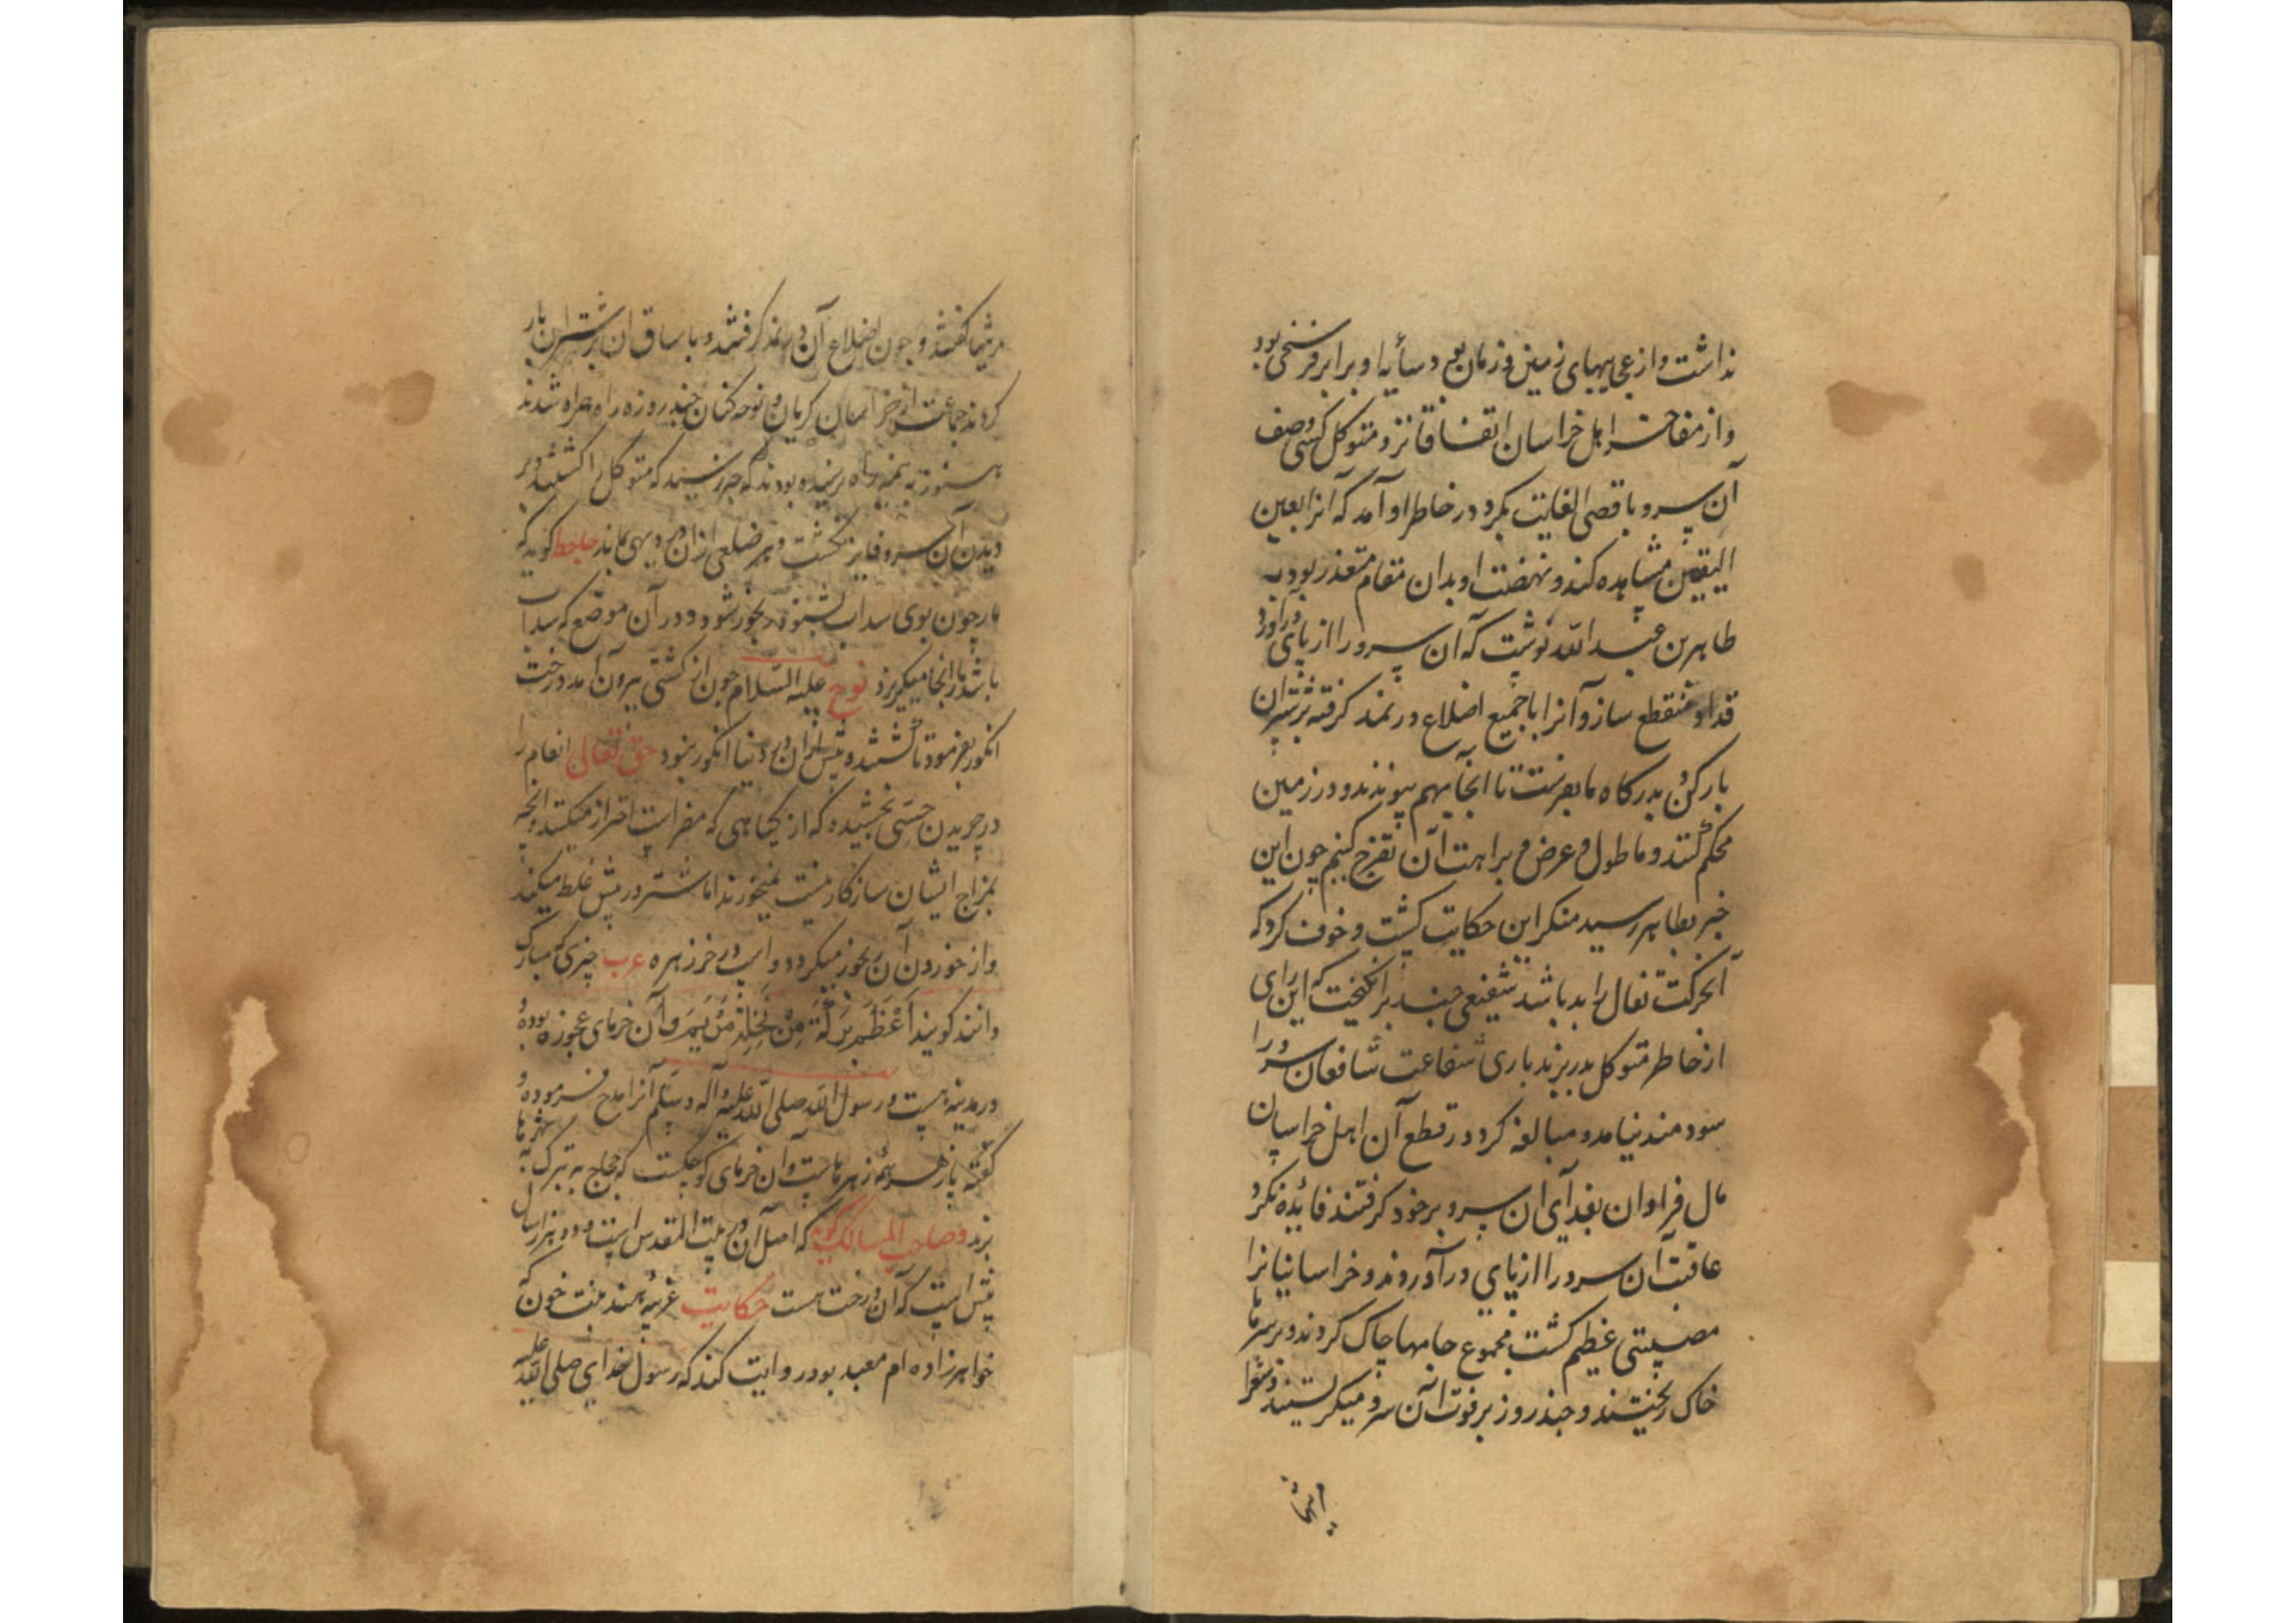 نداشت و از عجیبهای زمین و زمان بود و سایه او برابر فرسخی بود
و از مفاخر اهل خراسان اتفاقا نزد متوکل کسی وصف
آن سرو باقصی الغایت بکرد در خاطر او آمد که آنرا بعین
الیقین مشاهده کند و نهضت او بدان مقام متعذر بود به
طاهر بن عبد الله نوشت که آن سرو را از پای درآورد
قد او منقطع سازد و آنرا با جمیع اضلاع در نمد گرفته بر شتران
بار کن و بدرگاه ما بفرست تا اینجا بهم پیوندند و در زمین
محکم کنند و ما طول و عرض و براهت آن تفرج کنیم چون این
خبر بطاهر رسید منکر این حکایت گشت و خوف کرد که
آنحرکت تفال را بد باشد شفیعی چند برانگیخت که این رای
از خاطر متوکل بدر برند باری شفاعت شافعان سرو را
سودمند نیامد و مبالغه کرد در قطع آن اهل خراسان
مال فراوان بفدای آن سرو بر خود گرفتند فائده نکرد
عاقبت آن سرو را از پای در آوردند و خراسانیانرا
مصیبتی عظیم گشت مجموع جامها چاک کردند و بر سرها
خاک ریختند و چند روز بر فوت آن سرو میگریستند و شعرا
مرثیها گفتند و چون اضلاع آن در نمد گرفتند و با ساق آن بر شتران بار
کردند جماعت از خراسان گریان و نوحه کنان چند روزه راه همراه شدند
هنوز به نیمه راه نرسیده بودند که خبر رسید که متوکل را کشتند و بر
دیدن آن سرو فایز نگشت و هر ضلعی از آن در دیهی بماند جاحظ گوید که
مار چون بوی سداب بشنود رنجور شود و در آن موضع که سداب
باشد مار از انجا میگریزد نوح علیه السلام چون از کشتی بیرون آمد درخت
انگور بفرمود تا کشتند و پیش از آن در دنیا انگور نبود حق تعالی انعام را
در چریدن حسی بخشیده که از گیاهی که مضر است احتراز میکنند و آنچه
بمزاج ایشان سازگار نیست نمیخورند اما شتر در بیش غلط میکند
و از خوردن آن رنجور میگردد و اسپ در خرزهره عرب چیزی که مبارک
دانند گویند اعظم برکة من نخلة مریم و آن خرمای عجوزه بوده و
در مدینه هست و رسول الله صلی الله علیه و آله و سلم آنرا مدح فرموده و
گفته پازهر همه زهرهاست و آن خرمای کوچکست که حجاج به تبرک به شهرها
برند و صاحب المسالک گوید که اصل آن در بیت المقدس است و دو هزار سال
بیش است که آن درخت هست حکایت غریبه هند بنت خون که
خواهرزاده ام معبد بود روایت کند که رسول خدای صلی الله علیه